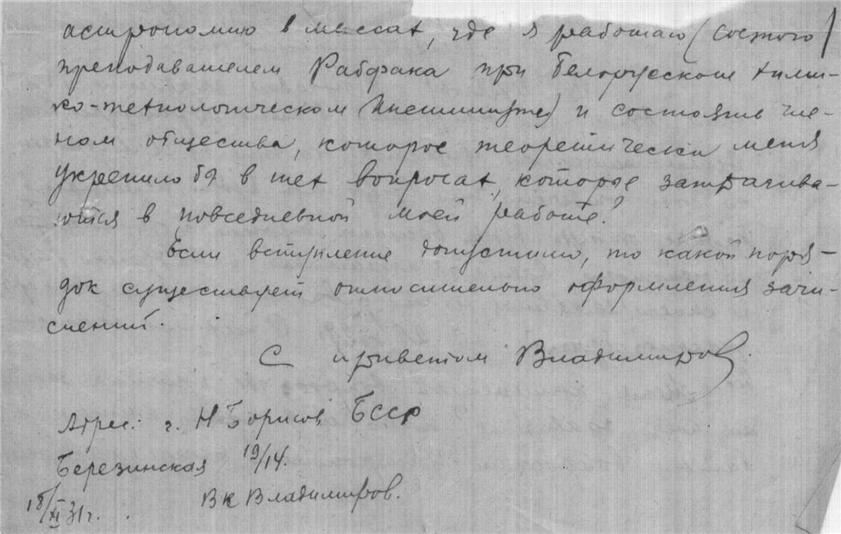 астрономию в массах, где я работаю (состою
преподавателем Рабфака при Белорусском хими-
ко-технологическом Институте) и состоять чле-
ном общества, которое теоретически меня
укрепило бы в тех вопросах, которые затрагива-
ются в повседневной моей работе?
Если вступление допустимо, то какой поря-
док существует относительно оформления зачи-
слений.
С приветом Владимиров.
Адрес: г. Н Борисов БССР
Березинская 19/14.
18/XI 31 г. ВК Владимиров.